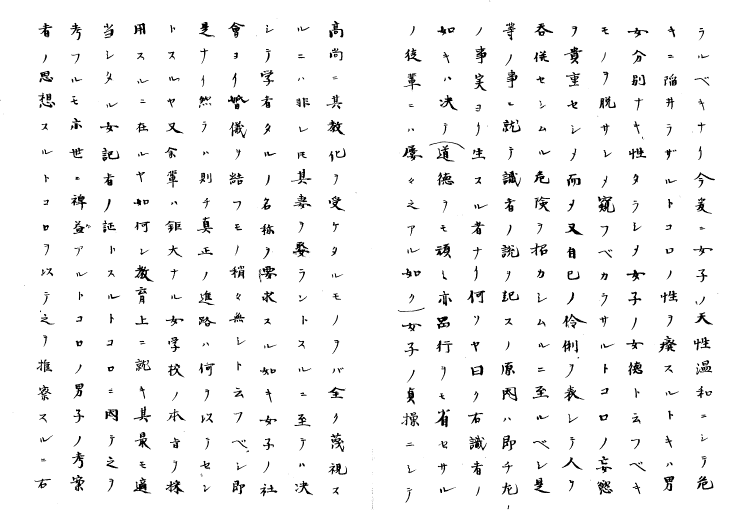 ラルベキナリ今爰ニ女子ノ天性温和ニシテ危
キニ陥井ラザルトコロノ性ヲ廃スルトキハ男
女分別ナキ性タラシメ女子ノ女徳ト云フベキ
モノヲ脱サシメ窺フベカラサルトコロノ妄慾
ヲ貴重セシメ而メ又自己ノ伶俐ヲ表シテ人ヲ
吞従セシムル危険ヲ招カシムルニ至ルベシ是
等ノ事ニ就テ識者ノ説ヲ記スノ原因ハ即チ左ノ
事実ヨリ生スル者ナリ何ソヤ曰ク右識者ノ
如キハ决テ(道徳ヲモ頑シ亦品行ヲモ省セサル
ノ後輩ニハ屡々之アル如ク)女子ノ貞操ニシテ
高尚ニ其教化ヲ受ケタルモノヲバ全ク蔑視ス
ルニハ非レ𪜈其妻ヲ娶ラントスルニ至テハ决
シテ学者タルノ名称ヲ要求スル如キ女子ノ社
會ヨリ婚儀ヲ結フモノ稍々無シト云フベシ即
是ナリ然ラハ則チ真正ノ進路ハ何ヲ以テセン
トスルヤ又余輩ハ鉅大ナル女学校ノ本旨ヲ採
用スルニ在ルヤ如何ン教育上ニ就キ其最モ適
当シタル女記者ノ証トスルトコロニ因テ之ヲ
考フルモ亦世ニ裨益アルトコロノ男子ノ考案
者ノ思想スルトコロヲ以テ之ヲ推察スルニ右